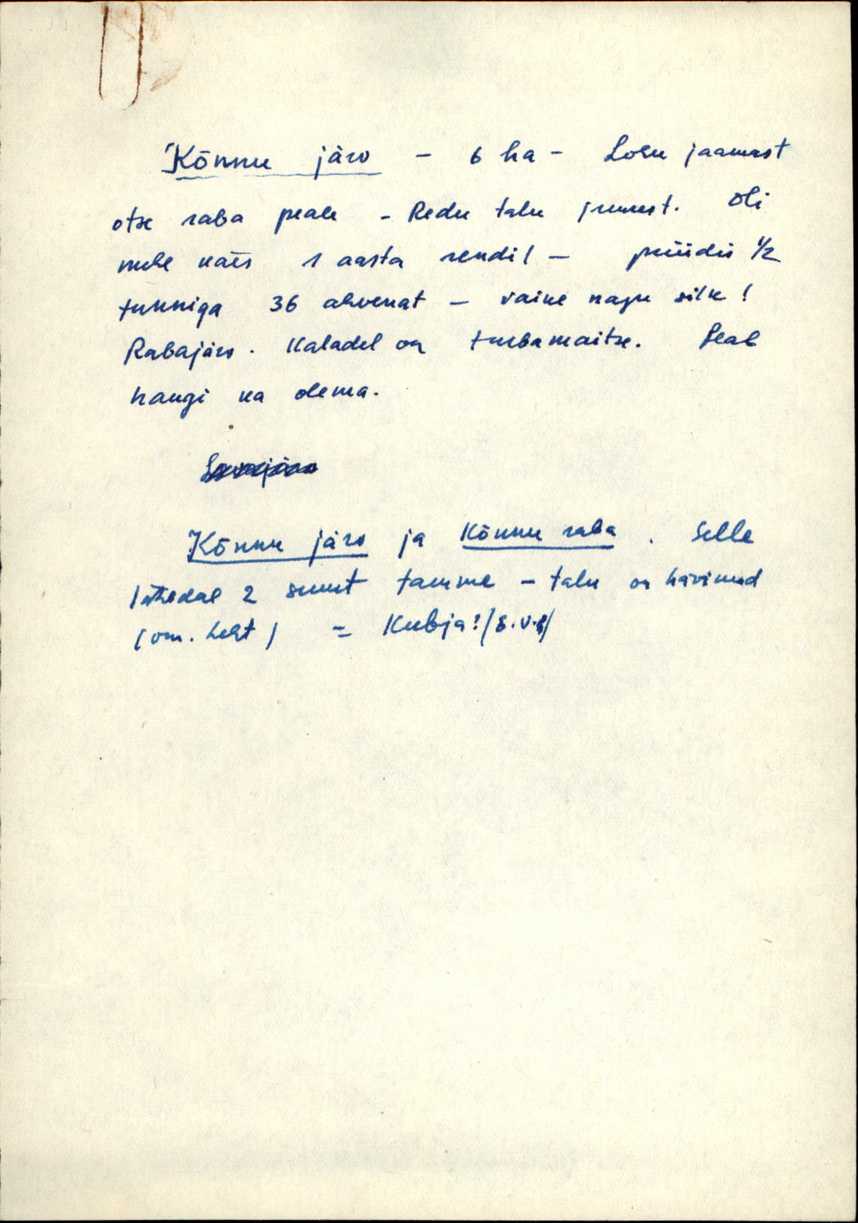 Kõnnu järv – 6 ha – Loku jaamast
otse raba peale – Redu talu juurest. Oli
mehe käes 1 aasta rendil – püüdis 1/2
tunniga 36 ahvenat – väike nagu silk!
Rabajärv. Kaladel on turbamaitse. Seal
haugi ka olema.
Kõnnu järv ja Kõnnu raba. Selle
lähedal 2 suurt tamme – talu on hävinud
(om. Leht) = Kubja?